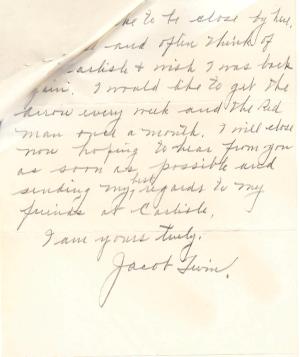 ke to be close by her,
and often think of
Carlisle & wish I was back
again. I would like to get the
arrow every week and the Red
man once a month. I will close
now hoping to hear from you
as soon as, possible and
sending my best regards to my
friends at Carlisle.
I am yours truly.
Jacob